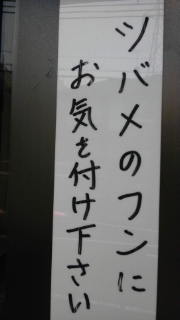 ツバメのフンに
お気を付け下さい